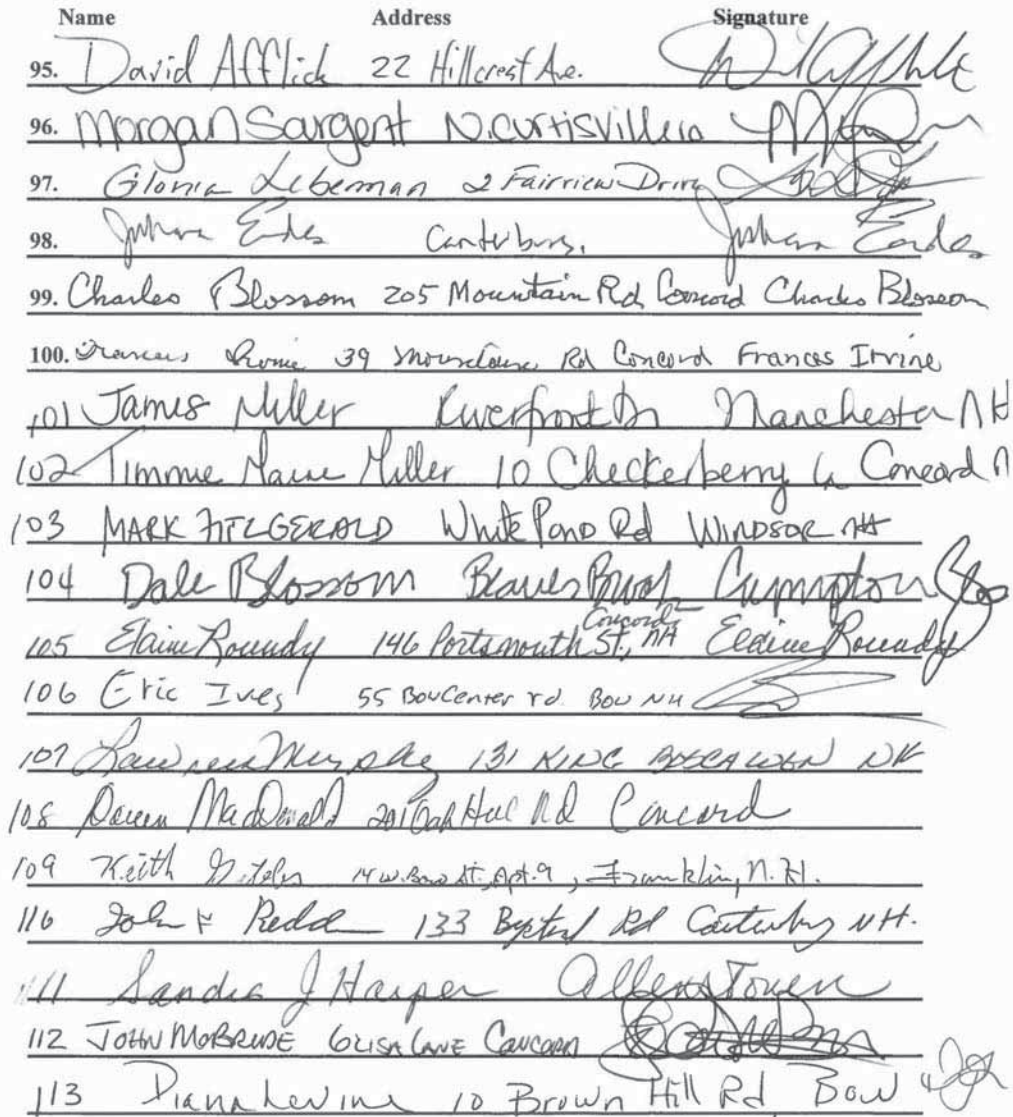 Name Address Signature
95. David Afflick 22 Hillcrest Ave.
96. Morgan Sargent N. Curtisville
97. Gloria Leberman 2 Fairview Drive
98. Eades Canterbury, Eades
99. Charles Blossom 205 Mountain Rd Concord Charles Blossom
100. Frances Irvine 39 Rd Concord Frances Irvine
101 James Miller Riverfront Dr Manchester NH
102 Timmie Marie Miller 10 Checkerberry Ln Concord N
103 MARK FITZGERALD White Pond Rd WINDSOR NH
104 Dale Blossom
105 Elaine Roundy 146 Portsmouth St., Concord NH Elaine Roundy
106 Eric Ives 55 Bow Center rd. Bow NH
107 Lawrence Murphy 131 KING BOSCAWEN NH
108 MacDonald 201 Oak Hill Rd Concord
109 Keith 14 W. Bow St., Apt. 9, Franklin, N.H.
110 John F 133 Rd Canterbury NH.
111 Sandra J Harper Allenstown
112 JOHN MCBRIDE LANE CONCORD
113 Diana Levine 10 Brown Hill Rd Bow